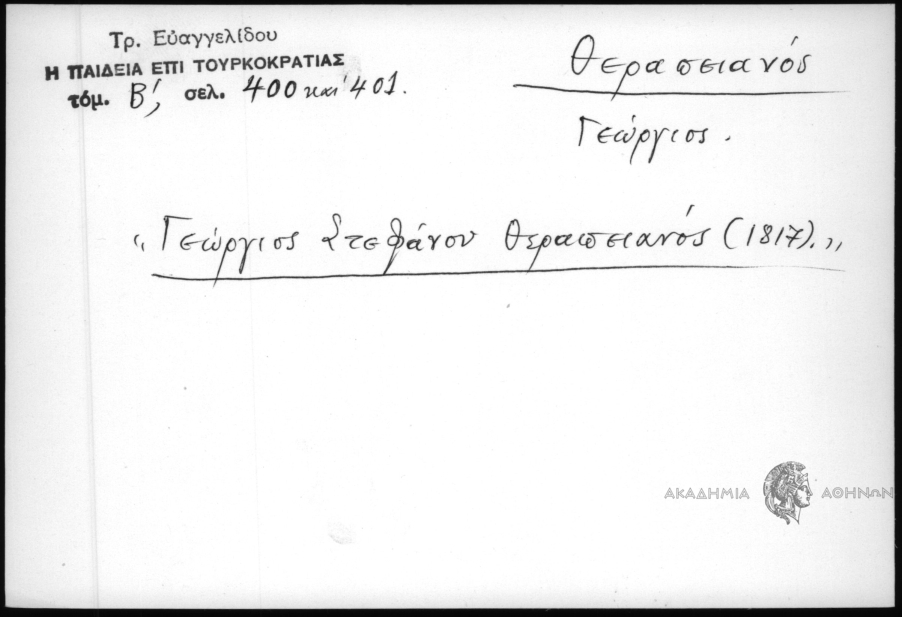 Τρ. Εὐαγγελίδου
Η ΠΑΙΔΕΙΑ ΕΠΙ ΤΟΥΡΚΟΚΡΑΤΙΑΣ
τόμ. Β', σελ. 400 καὶ 401.
Θεραπειανός
Γεώργιος.
"Γεώργιος Στεφάνου Θεραπειανός (1817)."
ΑΚΑΔΗΜΙΑ ΑΘΗΝΩΝ